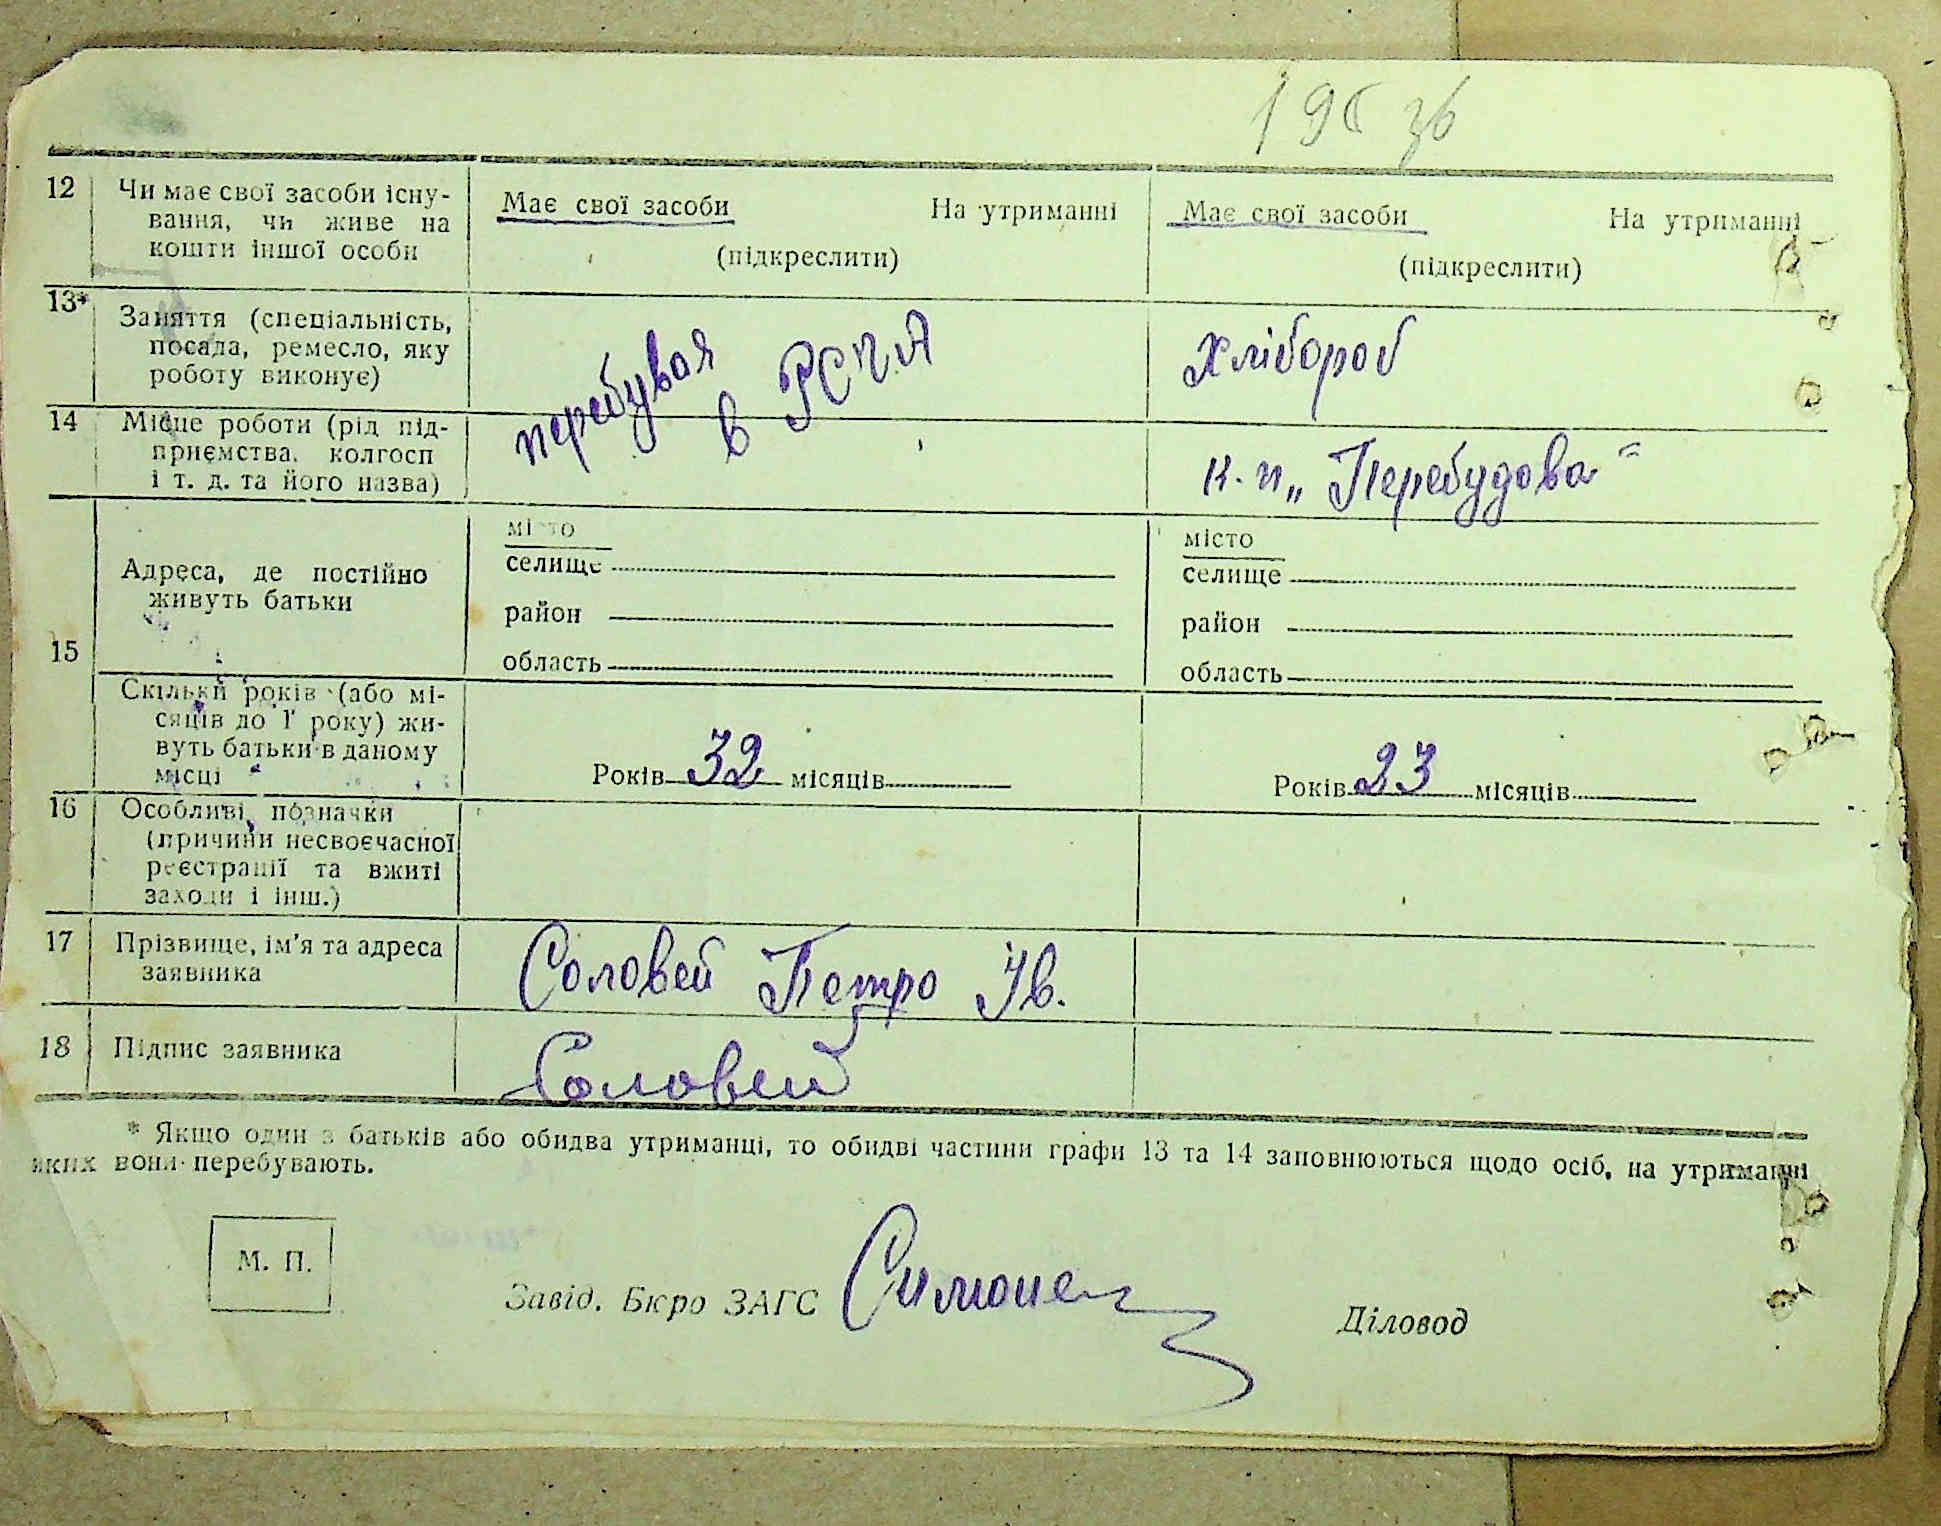 195 зв
12 Чи має свої засоби існу-
вання, чи живе на
кошти іншої особи
Має свої засоби На утриманні
(підкреслити)
Має свої засоби На утриманні
(підкреслити)
13* Заняття (спеціальність,
посада, ремесло, яку
роботу виконує)
перебував
в РСЧА
Хлібороб
14 Місце роботи (рід під-
приємства, колгосп
і т. д. та його назва)
к-п „Перебудова"
15 Адреса, де постійно
живуть батьки
місто
селище
район
область
місто
селище
район
область
Скільки років (або мі-
сяців до 1 року) жи-
вуть батьки в даному
місці
Років 32 місяців
Років 23 місяців
16 Особливі позначки
(причини несвоєчасної
реєстрації та вжиті
заходи і інш.)
17 Прізвище, ім'я та адреса
заявника
Соловей Петро Ів.
18 Підпис заявника
Соловей
* Якщо один з батьків або обидва утриманці, то обидві частини графи 13 та 14 заповнюються щодо осіб, на утриманні
яких вони перебувають.
М. П.
Завід. Бюро ЗАГС
Діловод